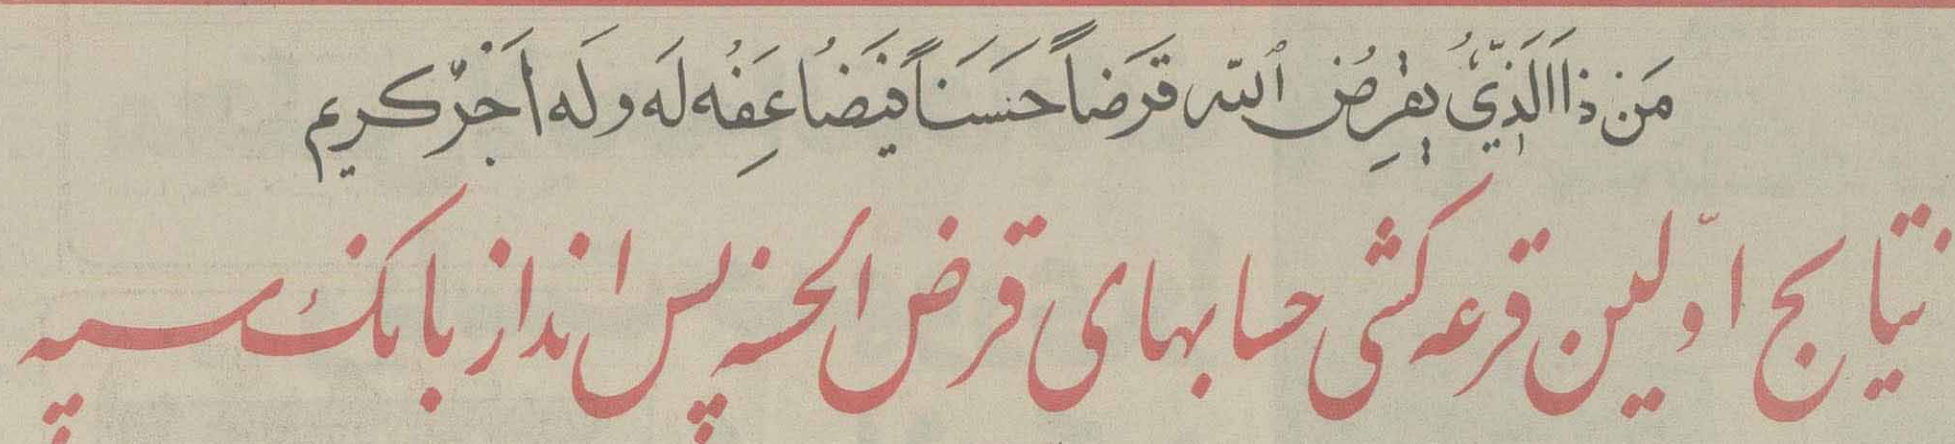 مَن ذَا الَّذِي يُقرِضُ اللّٰه قَرَضاً حَسَنَاً فَيَضُاعَفِهُ لَه وَلَه اَجَرٌ كريم
نتایج اوّلین قرعه کشی حسابهای قرض الحسنه پس انداز بانک سپه